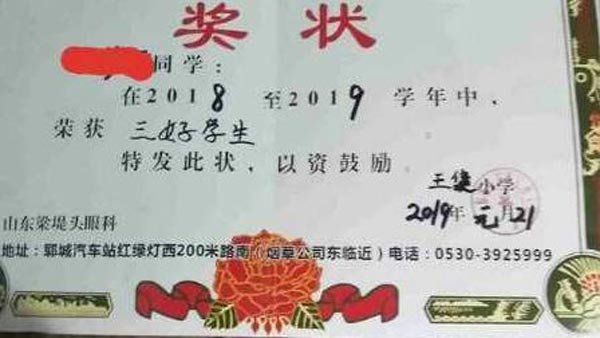 奖状
同学：
在2018至2019学年中、
荣获 三好学生
特发此状、以资鼓励。
王堤小学
2019年元月21
山东梁堤头眼科
地址：郓城汽车站红绿灯西200米路南（烟草公司东临近）电话：0530-3925999